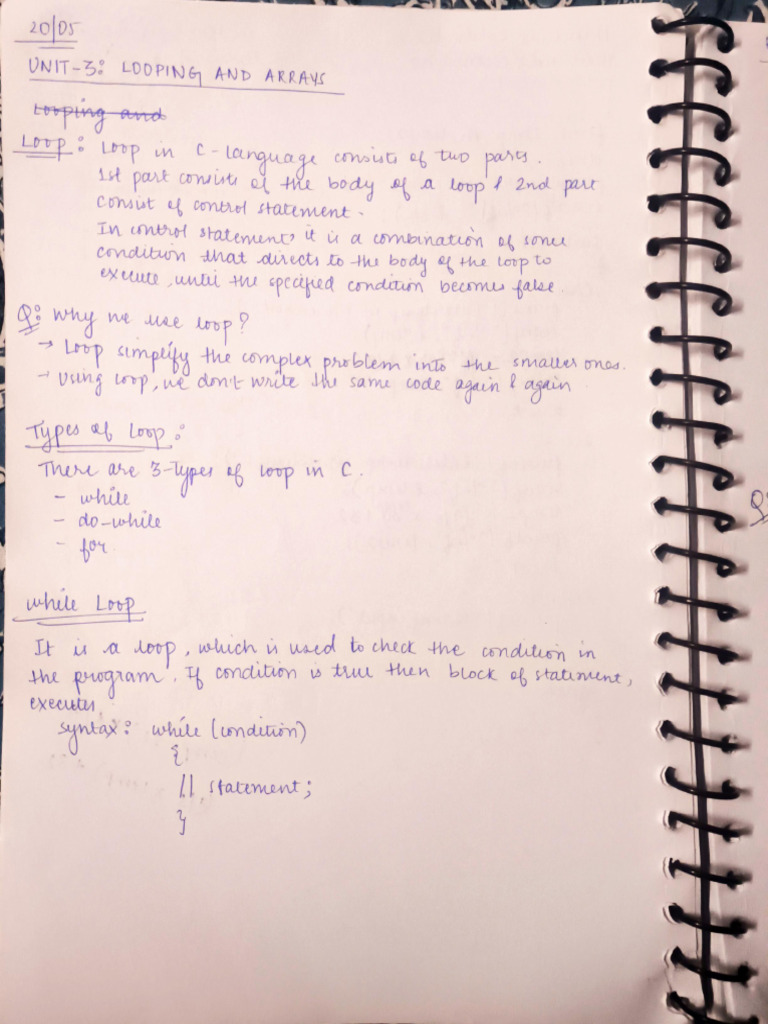 20/05
UNIT-3: LOOPING AND ARRAYS
Looping and
Loop: Loop in C-language consists of two parts.
1st part consists of the body of a loop & 2nd part
consist of control statement.
In control statement, it is a combination of some
condition that directs to the body of the loop to
execute, until the specified condition becomes false.
Q: Why we use loop?
→ Loop simplify the complex problem into the smaller ones.
→ Using loop, we don't write the same code again & again
Types of Loop:
There are 3-Types of loop in C.
- while
- do-while
- for
While Loop
It is a loop, which is used to check the condition in
the program. If condition is true then block of statement,
executes
syntax: while (condition)
{
// statement;
}
Q: